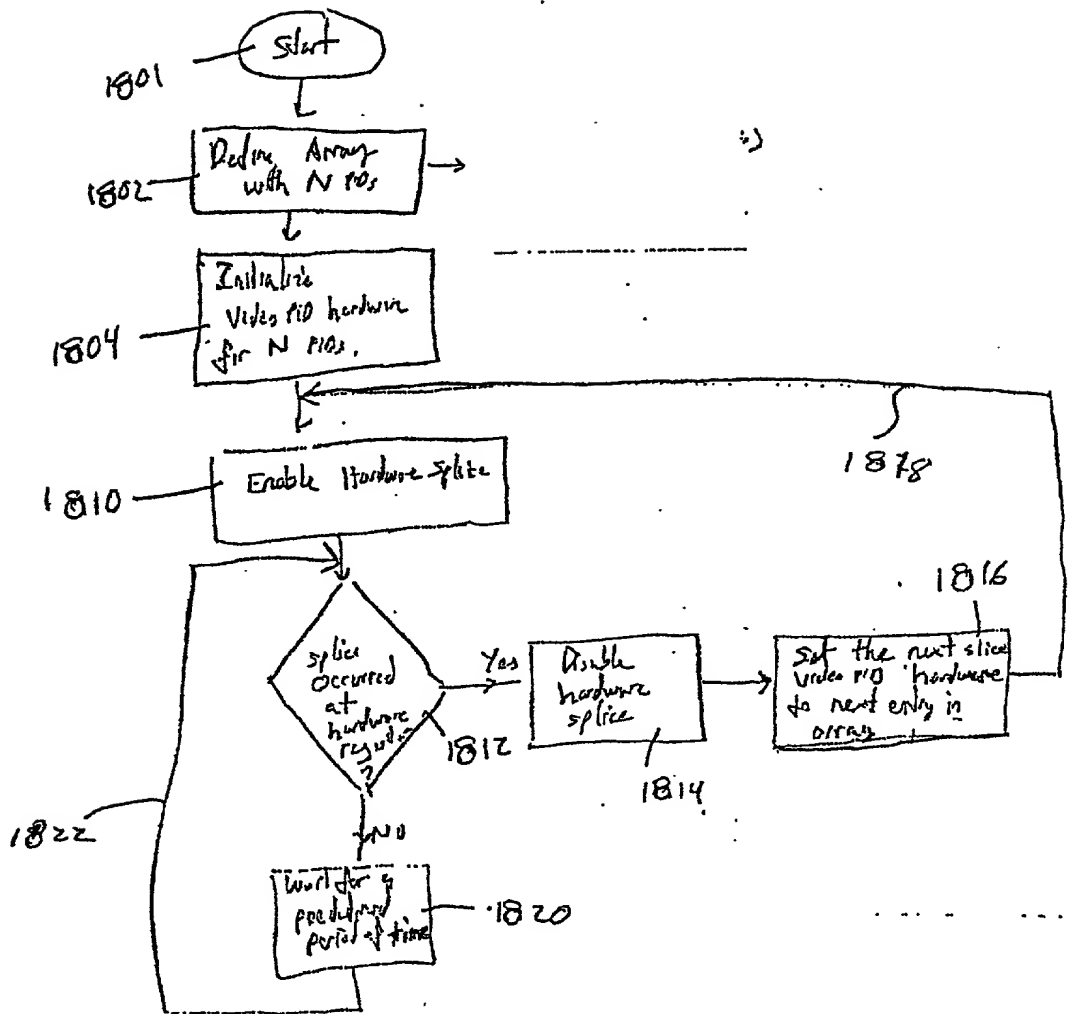 Start
1801
Define Array
with N PIDs
1802
Initialize
Video PID hardware
for N PIDs.
1804
1878
Enable Hardware Splice
1810
1816
splice
occurred
at
hardware
register
?
1812
Yes
Disable
hardware
splice
1814
Set the next slice
video PID hardware
to next entry in
array
1822
NO
Wait for a
period of time
1820